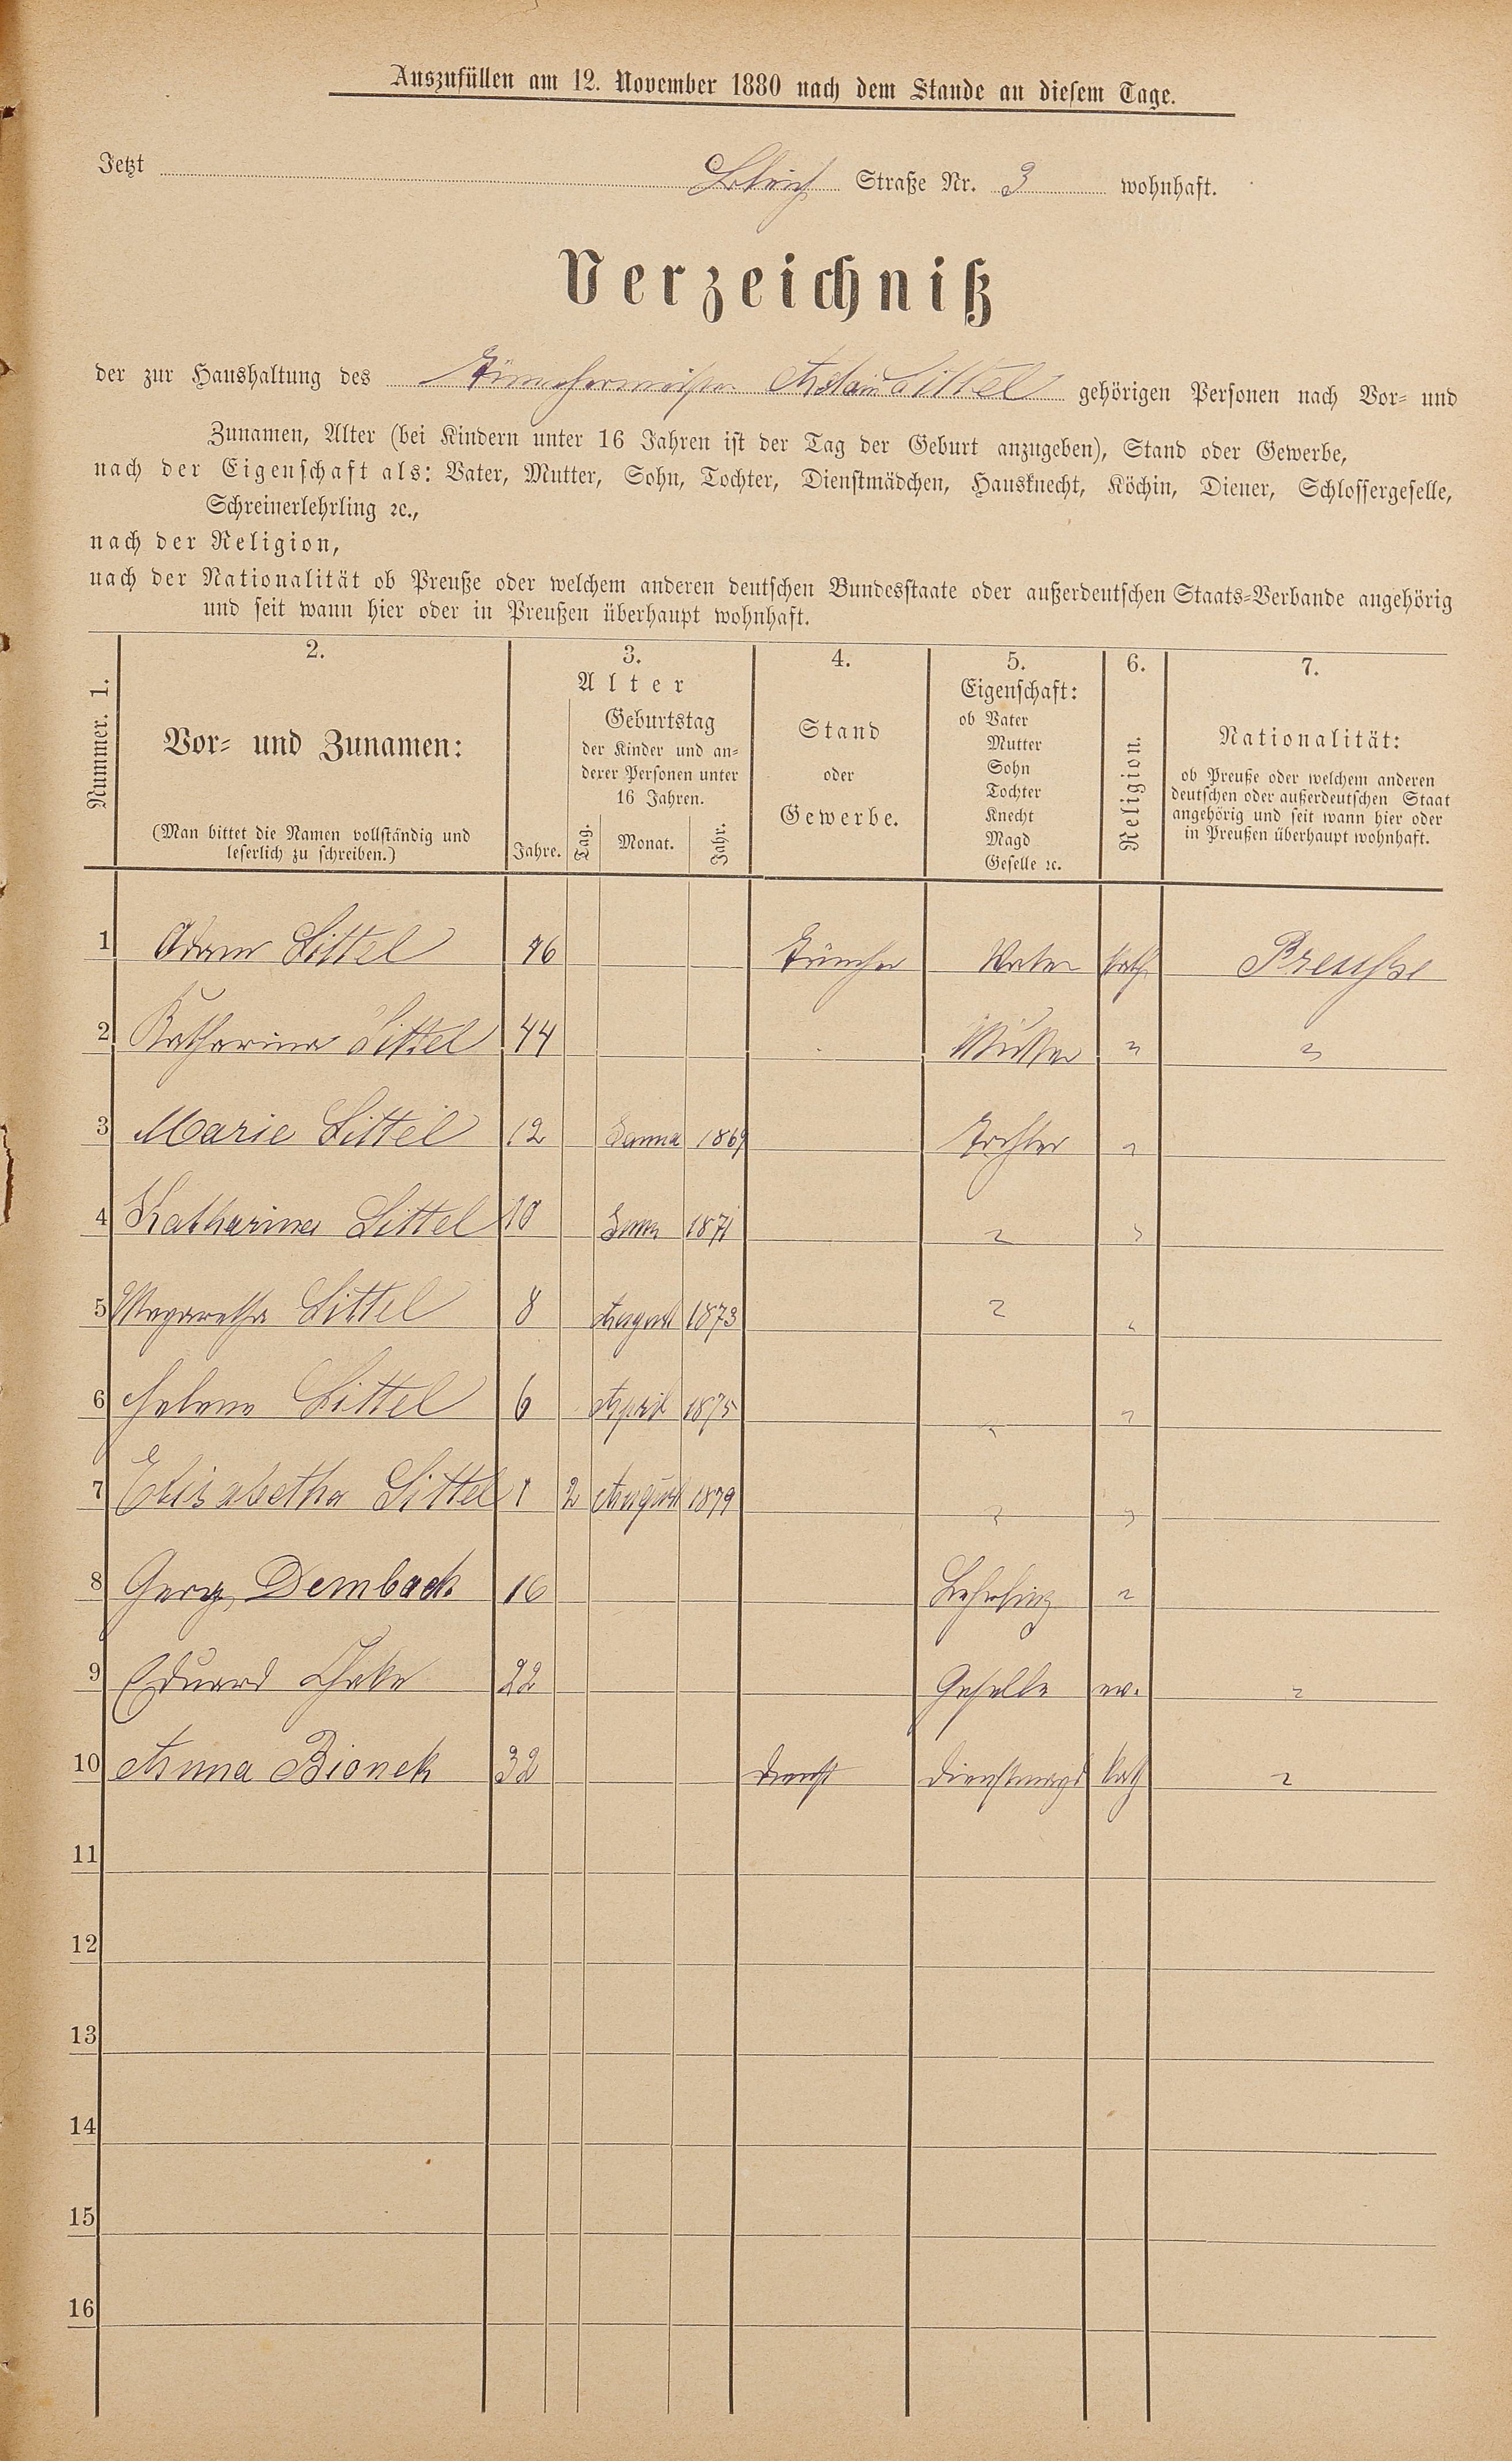 Auszufüllen am 12. November 1880 nach dem Stande an diesem Tage.
Jetzt Straße Nr. 3 wohnhaft.
Verzeichniß
der zur Haushaltung des Tünchermeister Adam Littel gehörigen Personen nach Vor- und
Zunamen, Alter (bei Kindern unter 16 Jahren ist der Tag der Geburt anzugeben), Stand oder Gewerbe,
nach der Eigenschaft als: Vater, Mutter, Sohn, Tochter, Dienstmädchen, Hausknecht, Köchin, Diener, Schlossergeselle,
Schreinerlehrling ꝛc.,
nach der Religion,
nach der Nationalität ob Preuße oder welchem anderen deutschen Bundesstaate oder außerdeutschen Staats-Verbande angehörig
und seit wann hier oder in Preußen überhaupt wohnhaft.
Nummer. 1.
2.
Vor- und Zunamen:
(Man bittet die Namen vollständig und
leserlich zu schreiben.)
3.
Alter
Jahre.
Geburtstag
der Kinder und an-
derer Personen unter
16 Jahren.
Tag. Monat. Jahr.
4.
Stand
oder
Gewerbe.
5.
Eigenschaft:
ob Vater
Mutter
Sohn
Tochter
Knecht
Magd
Geselle ꝛc.
6.
Religion.
7.
Nationalität:
ob Preuße oder welchem anderen
deutschen oder außerdeutschen Staat
angehörig und seit wann hier oder
in Preußen überhaupt wohnhaft.
1 Adam Littel 46 Tüncher Vater kath. Preuße
2 Katharina Littel 44 Mutter " "
3 Marie Littel 12 1869 Tochter "
4 Katharina Littel 10 1871 " "
5 Magaretha Littel 8 August 1873 " "
6 Helene Littel 6 April 1875 " "
7 Elisabetha Littel 1 2 August 1879 " "
8 Georg Dembach 16 Lehrling "
9 Eduard 22 Geselle ev. "
10 Anna Bionek 32 Dienst Dienstmagd kath "
11
12
13
14
15
16